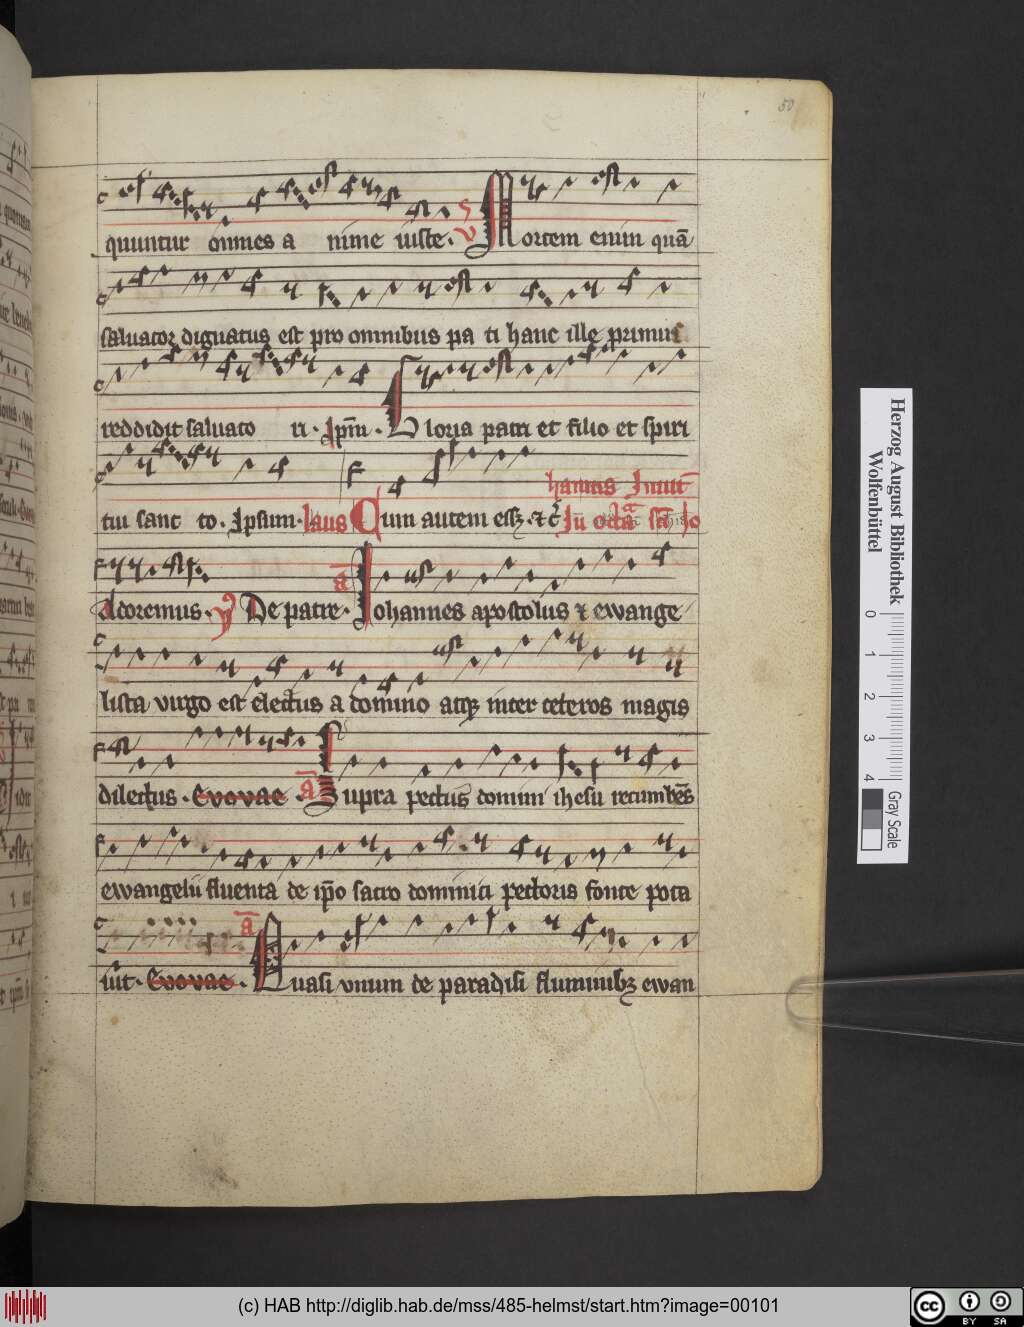 50
quuntur omnes a nime iuste. V Mortem enim quā
saluator dignatus est pro omnibus pa ti hanc ille primus
reddidit saluato ri. Ipm̄. Gloria patri et filio et spiri
hannis Inuit
tui sanc to. Ipsum. laus Cum autem
Adoremus. De patre. a Iohannes apostolus ⁊ ewange
lista virgo est electus a domino atqꝫ inter ceteros magis
dilectus. Evovae. a Supra pectus domini ihesu recumbēs
ewangelii fluenta de ip̄o sacro dominici pectoris fonte pota
uit. Evovae. a Quasi vnum de paradisi fluminibꝫ ewan
Herzog August Bibliothek
Wolfenbüttel
0 1 2 3 4
Gray Scale
(c) HAB http://diglib.hab.de/mss/485-helmst/start.htm?image=00101
cc BY SA